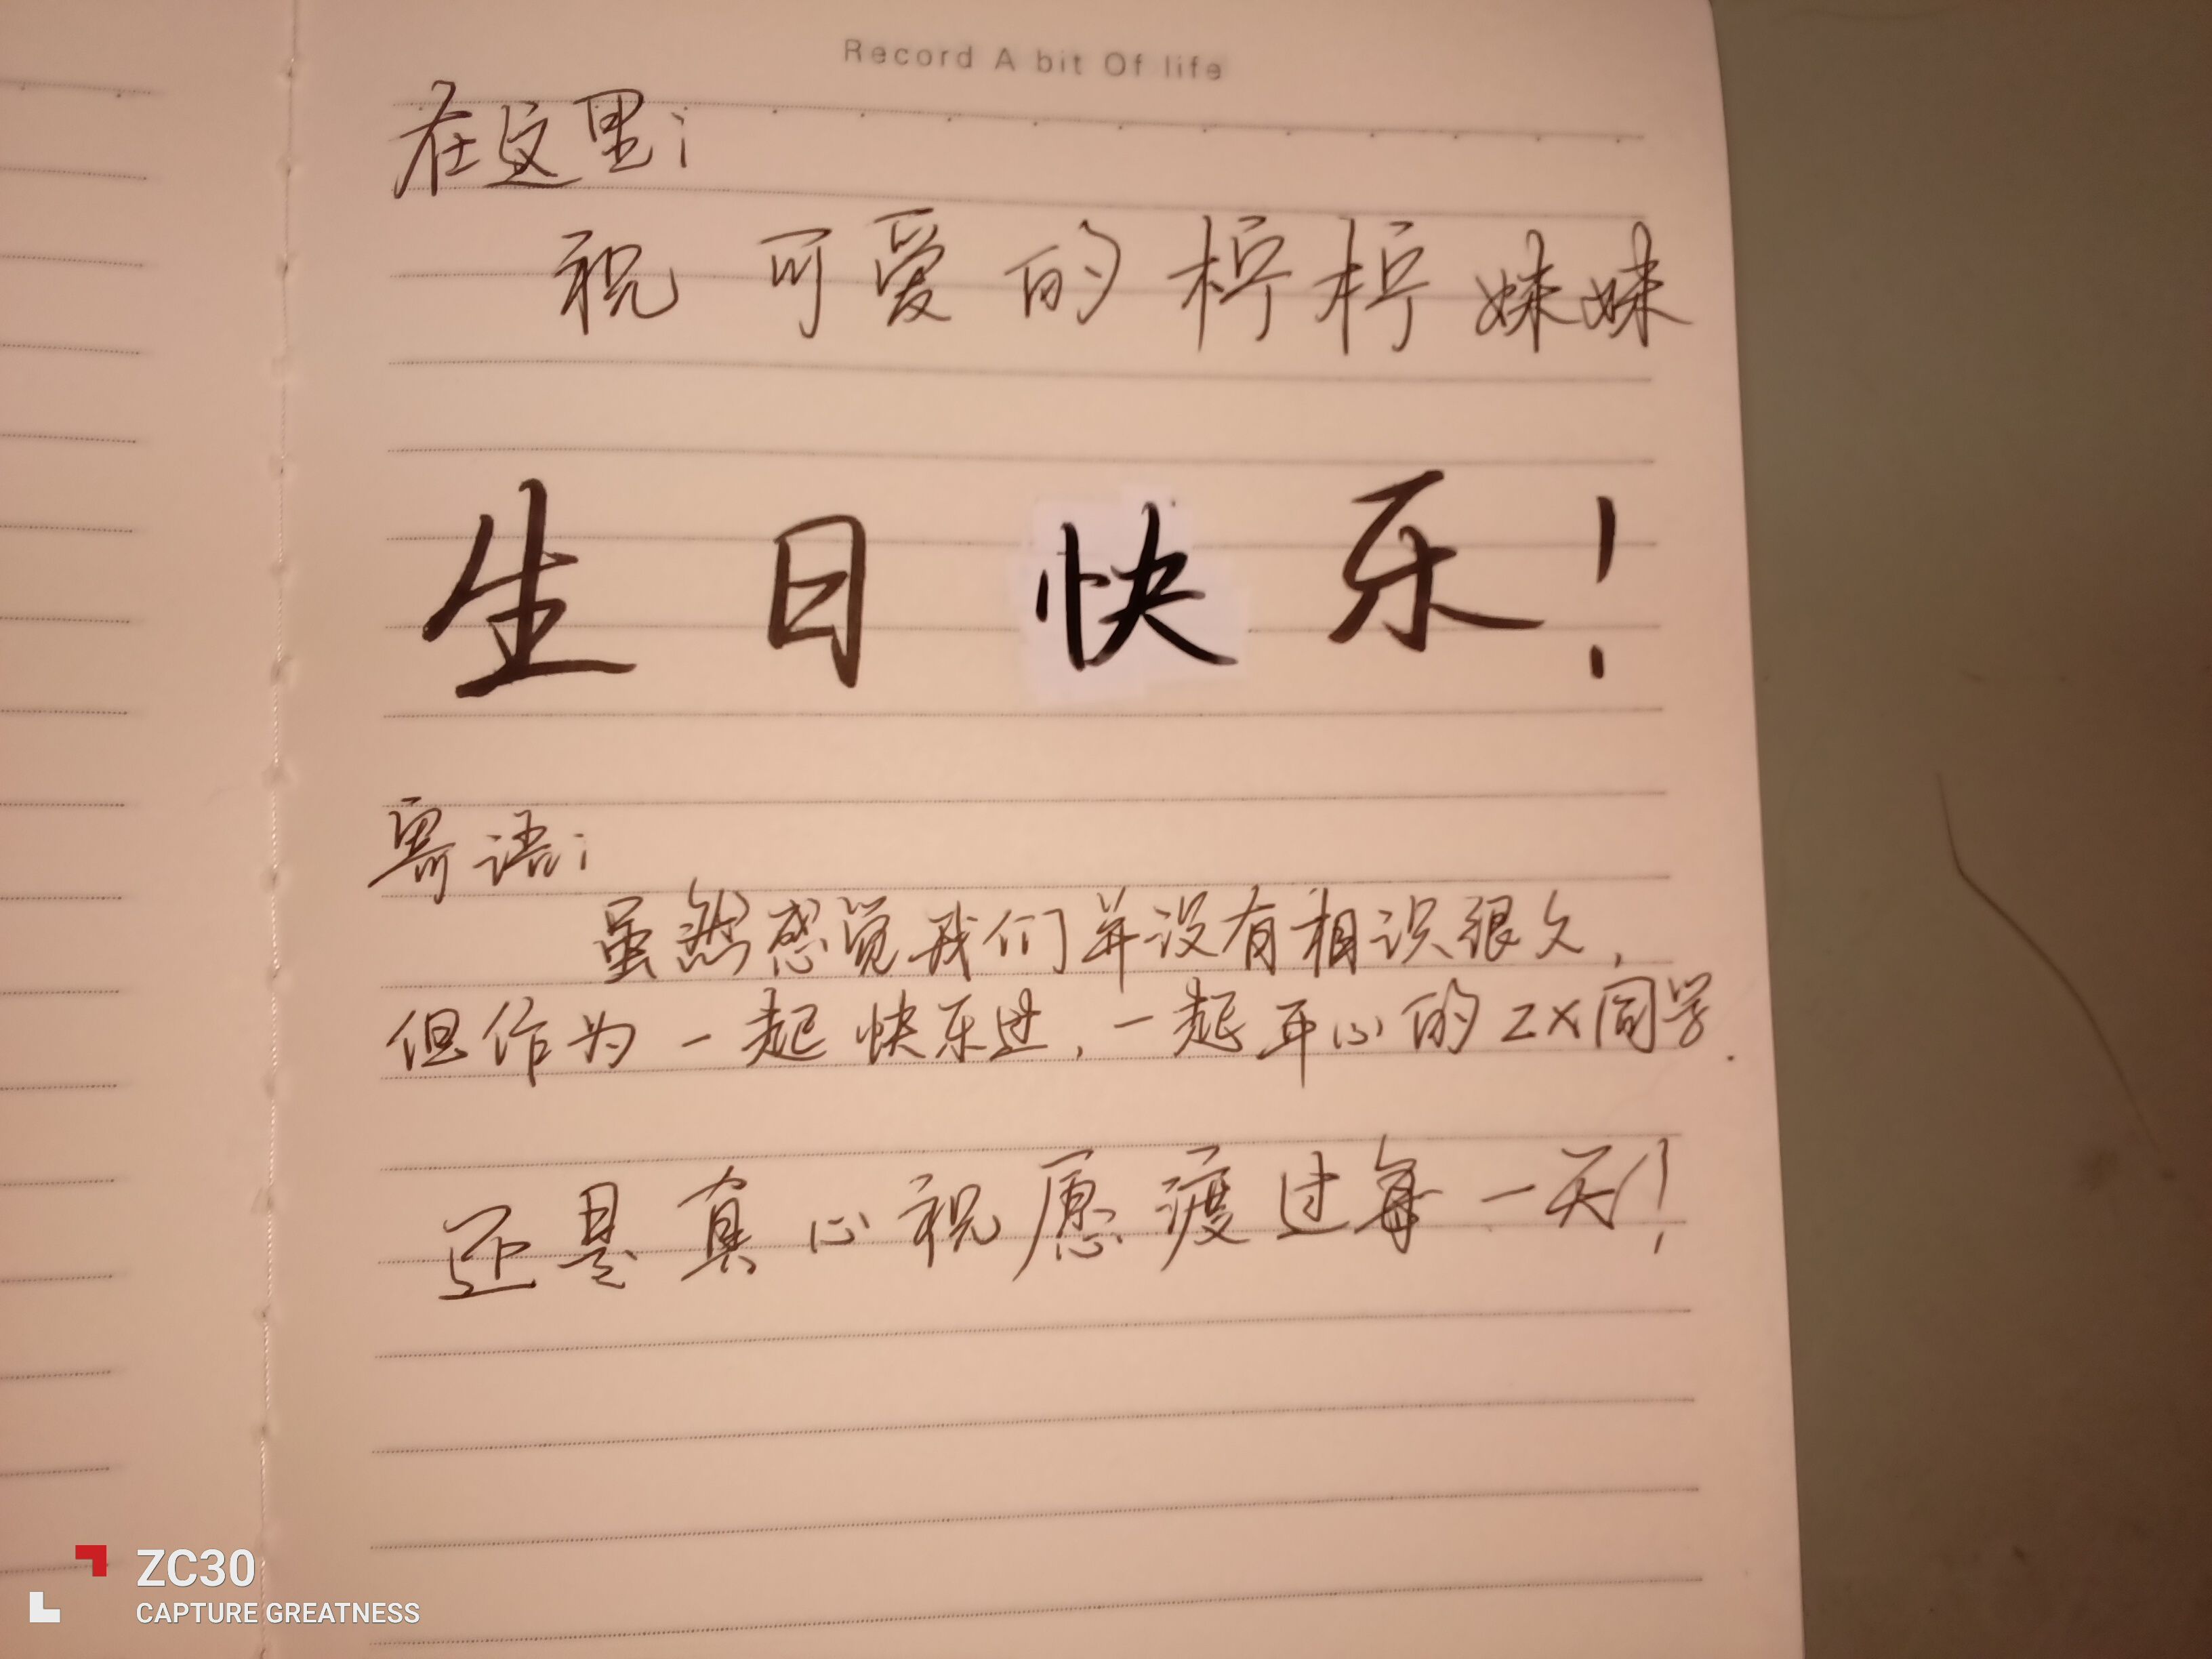 Record A bit Of life
在这里：
祝可爱的柠柠妹妹
生日快乐！
寄语：
虽然感觉我们并没有相识很久，
但作为一起快乐过，一起开心的ZX同学.
还是真心祝愿渡过每一天！
ZC30
CAPTURE GREATNESS